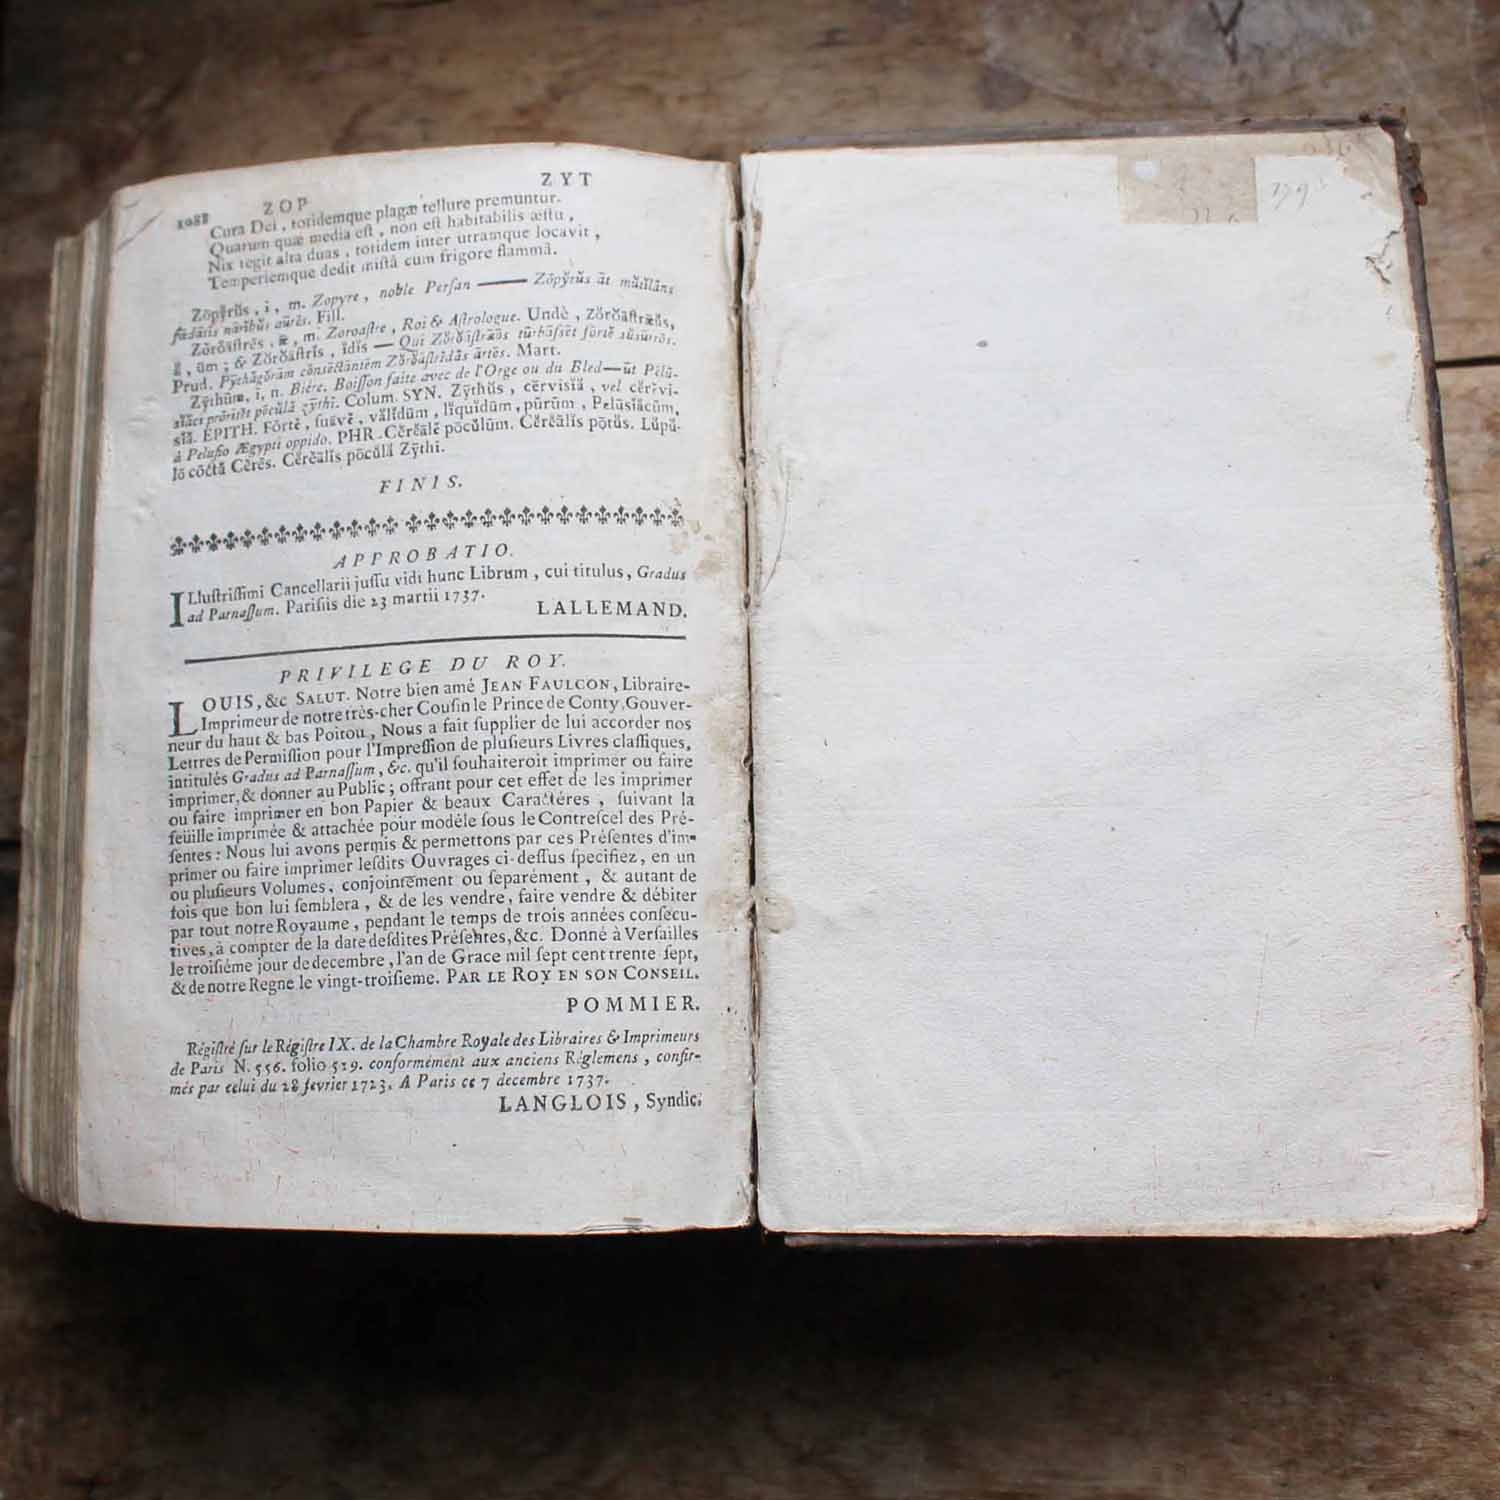 1088 ZOP ZYT
Cura Dei, totidemque plagæ tellure premuntur.
Quarum quæ media est, non est habitabilis æstu,
Nix tegit alta duas, totidem inter utramque locavit,
Temperiemque dedit mistâ cum frigore flammâ.
Zōpy̆rŭs, i, m. Zopyre, noble Persan —— Zōpy̆rŭs āt mŭtĭlāns
fœdātis nārĭbŭs aūrēs. Fill.
Zŏrŏāstrēs, æ, m. Zoroastre, Roi & Astrologue. Undè, Zŏrŏāstræŭs,
ă, ūm; & Zŏrŏāstrĭs, ĭdĭs — Quĭ Zŏrŏāstræōs tūrbāssēt fōrtĕ sŭsūrrōs.
Prud. Py̆thăgŏrām cōnsēctāntēm Zŏrŏāstrĭdăs ārtēs. Mart.
Zy̆thūm, i, n. Biére. Boisson faite avec de l'Orge ou du Bled—ūt Pēlū-
sĭăci prōrītēt pōcŭlă zy̆thi. Colum. SYN. Zy̆thŭs, cērvisĭă, vel cĕrēvi-
sĭă. EPITH. Fōrtĕ, suāvĕ, vălĭdūm, lĭquĭdūm, pūrūm, Pelūsĭăcūm,
à Pelusio Ægypti oppido. PHR. Cĕrĕālĕ pōcŭlūm. Cĕrĕālĭs pōtŭs. Lŭpŭ-
lō cōctă Cĕrēs. Cĕrĕālĭs pōcŭlă Zy̆thi.
FINIS.
APPROBATIO.
ILlustrissimi Cancellarii jussu vidi hunc Librum, cui titulus, Gradus
ad Parnassum. Parisiis die 23 martii 1737.
LALLEMAND.
PRIVILEGE DU ROY.
LOUIS, &c SALUT. Notre bien amé JEAN FAULCON, Libraire-
Imprimeur de notre très-cher Cousin le Prince de Conty, Gouver-
neur du haut & bas Poitou, Nous a fait supplier de lui accorder nos
Lettres de Permission pour l'Impression de plusieurs Livres classiques,
intitulés Gradus ad Parnassum, &c. qu'il souhaiteroit imprimer ou faire
imprimer, & donner au Public; offrant pour cet effet de les imprimer
ou faire imprimer en bon Papier & beaux Caractéres, suivant la
feüille imprimée & attachée pour modéle sous le Contrescel des Pré-
sentes: Nous lui avons permis & permettons par ces Présentes d'im-
primer ou faire imprimer lesdits Ouvrages ci-dessus specifiez, en un
ou plusieurs Volumes, conjointement ou separément, & autant de
fois que bon lui semblera, & de les vendre, faire vendre & débiter
par tout notre Royaume, pendant le temps de trois années consecu-
tives, à compter de la date desdites Présentes, &c. Donné à Versailles
le troisiéme jour de decembre, l'an de Grace mil sept cent trente sept,
& de notre Regne le vingt-troisieme. PAR LE ROY EN SON CONSEIL.
POMMIER.
Régistré sur le Régistre IX. de la Chambre Royale des Libraires & Imprimeurs
de Paris N. 556. folio 519. conformément aux anciens Réglemens, confir-
més par celui du 28 fevrier 1723. A Paris ce 7 decembre 1737.
LANGLOIS, Syndic.